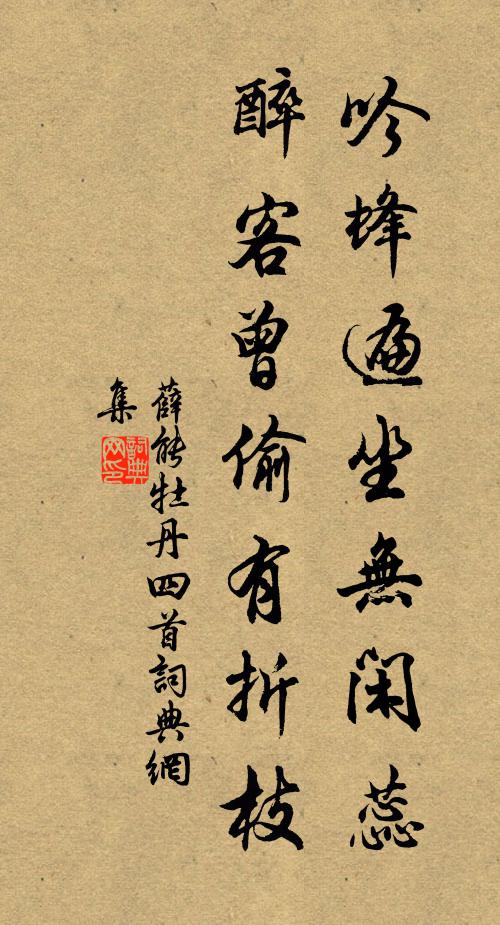 吟蜂遍坐無閑蕊
醉客曾偷有折枝
薛能牡丹四首詞典網
集
詞典網印